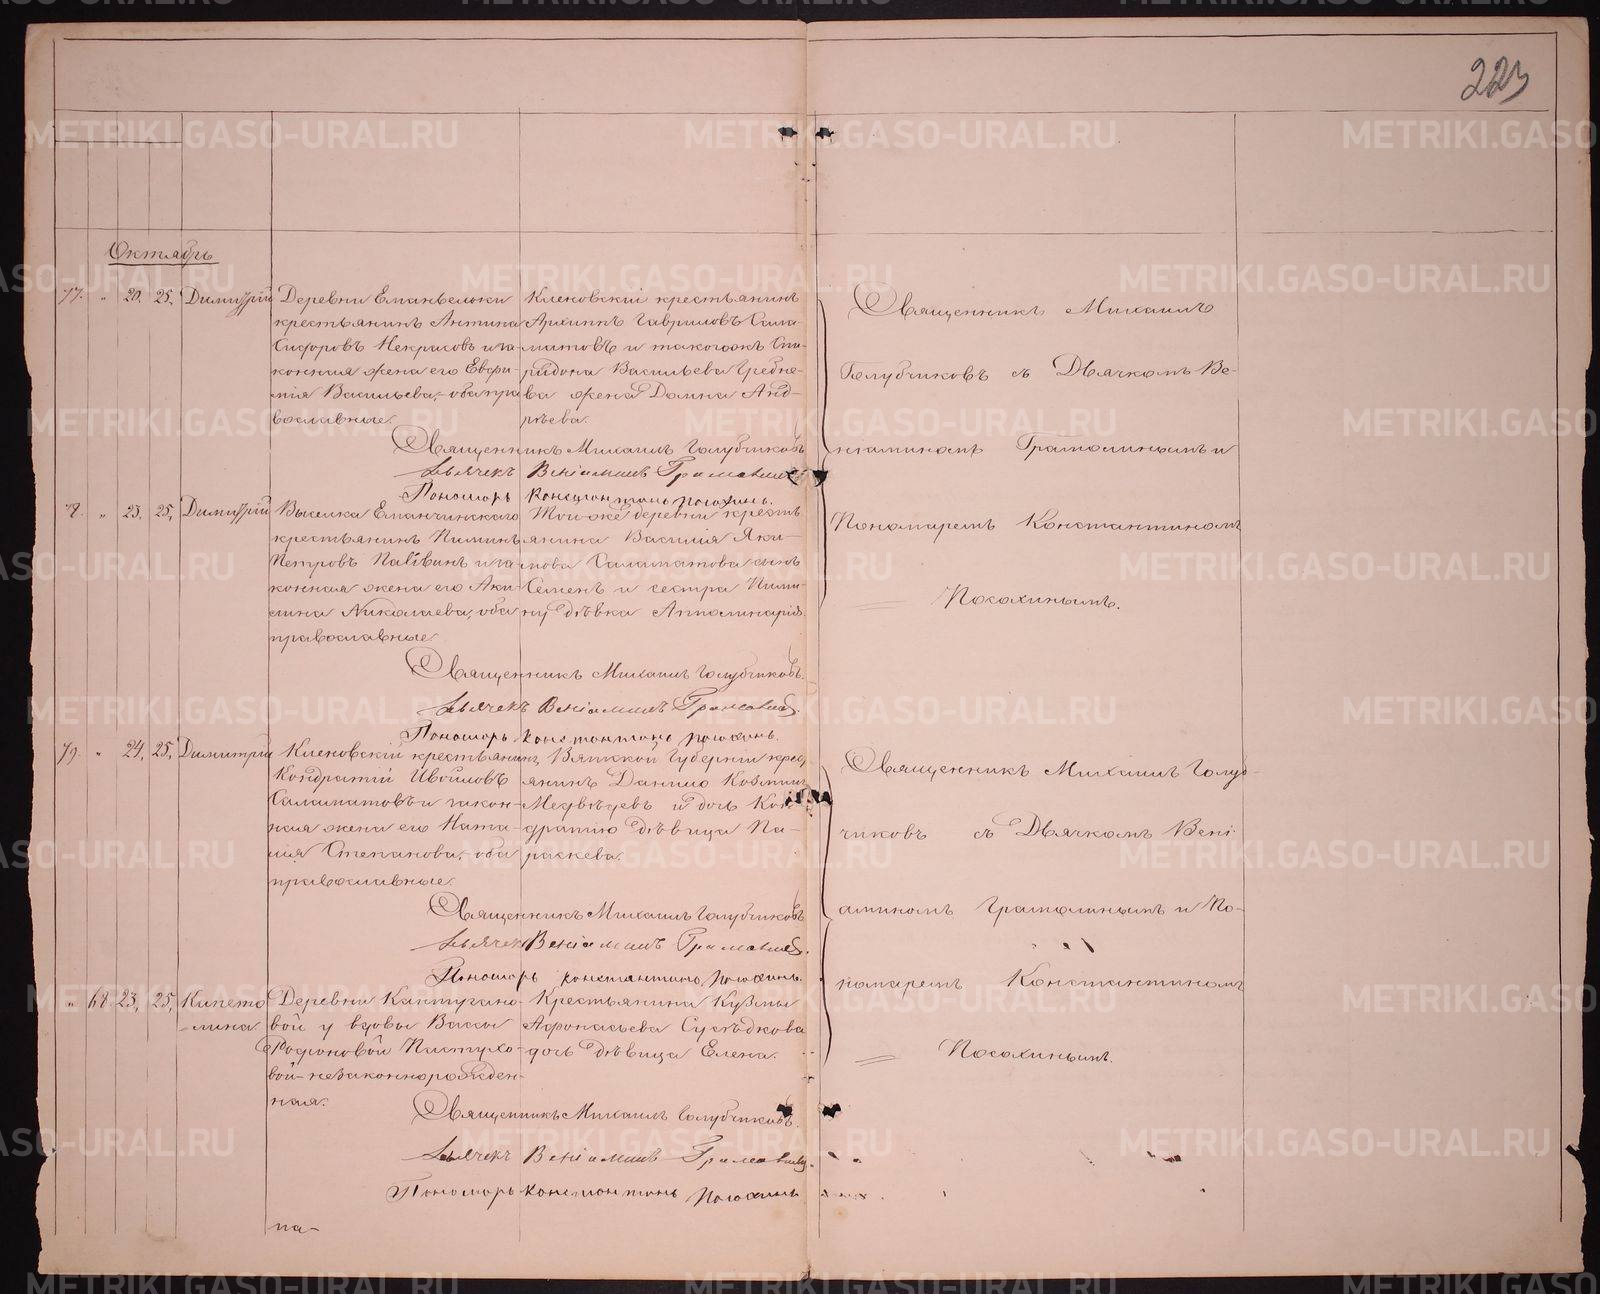 223
Октябрь
77. " 20. 25. Димитрій
Деревни Еманъелоки
крестьянинъ Антипа
Сидоровъ Некрасовъ и за-
конная жена его Евфи-
мія Васильева, оба пра
вославные.
Кленовскій крестьянинъ
Архиппъ Гавриловъ Сала-
матовъ и такогожъ Спи-
ридона Васильева Гребне-
ва жена Домна Анд-
рѣева.
Священникъ Михаилъ Голубчиковъ
Дьячекъ Веніаминъ Грамолинъ
Пономарь Константинъ Посохинъ.
Священникъ Михаилъ
Голубчиковъ съ Дьячкомъ Ве-
ніаминомъ Грамолинымъ и
Пономаремъ Константиномъ
Посохинымъ.
78. " 23. 25. Димитрій
Выселка Еманчинскаго
крестьянинъ Пиминъ
Петровъ Пайвинъ и за-
конная жена его Аки-
лина Николаева, оба
православные
Той-же деревни кресть
янина Василія Яки-
мова Саламатова сынъ
Семенъ и сестра Пими-
ну дѣвка Апполинарія.
Священникъ Михаилъ Голубчиковъ.
Дьячекъ Веніаминъ Грамолинъ.
Пономарь Константинъ Посохинъ.
79. " 24. 25. Димитрій
Кленовскій крестьянинъ
Кондратій Ивойловъ
Саламатовъ и закон-
ная жена его Ната-
лія Степанова, оба
православные.
Вятской Губерніи крес
янинъ Данило Козминъ
Медвѣдевъ и дочь Кон
дратію дѣвица Па-
раскева.
Священникъ Михаилъ Голубчиковъ
Дьячекъ Веніаминъ Грамолинъ.
Пономарь Константинъ Посохинъ.
Священникъ Михаилъ Голуб-
чиковъ съ Дьячкомъ Вені-
аминомъ Грамолинымъ и По-
номаремъ Константиномъ
Посохинымъ.
" 68 23. 25. Капето
лина
Деревни Кантугано-
вой у вдовы Вассы
Родіоновой Пастухо-
вой незаконнорожден-
ная.
Крестьянина Кузмы
Афонасьева Сусѣдкова
дочь дѣвица Елена.
Священникъ Михаилъ Голубчиковъ.
Дьячекъ Веніаминъ Грамолинъ.
Пономарь Константинъ Посохинъ
па-
METRIKI.GASO-URAL.RU